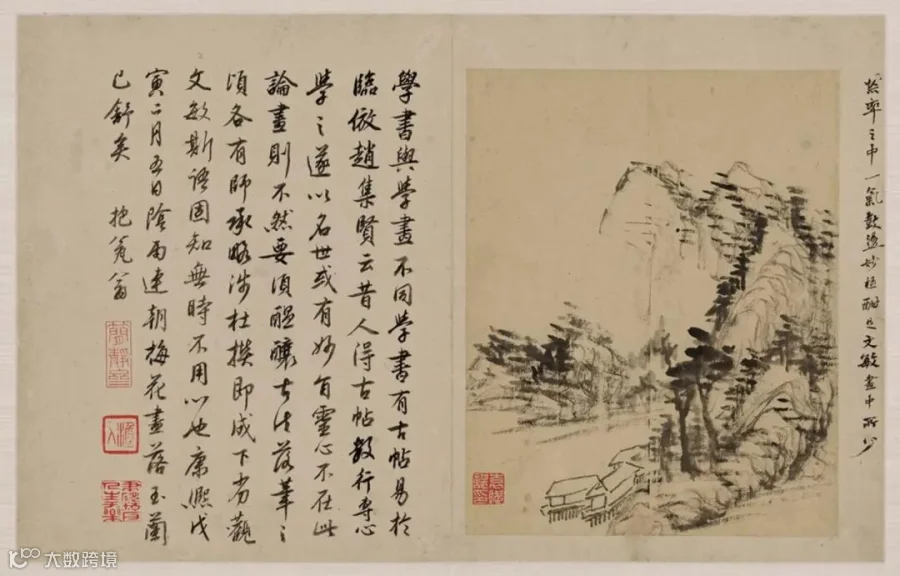 率之中一氣鼓盪妙極酣足文敏畫中所少
學書與學畫不同學書有古帖易於
臨倣趙集賢云昔人得古帖數行專心
學之遂以名世或有妙靈心不在此
論畫則不然要須醞釀古法落筆之
頃各有師承略涉杜撰即成下劣觀
文敏斯語固知無時不用心也康熙戊
寅二月五日陰雨連朝梅花盡落玉蘭
已舒矣 抱瓮翁
簡靜齋
澹人
大数跨境